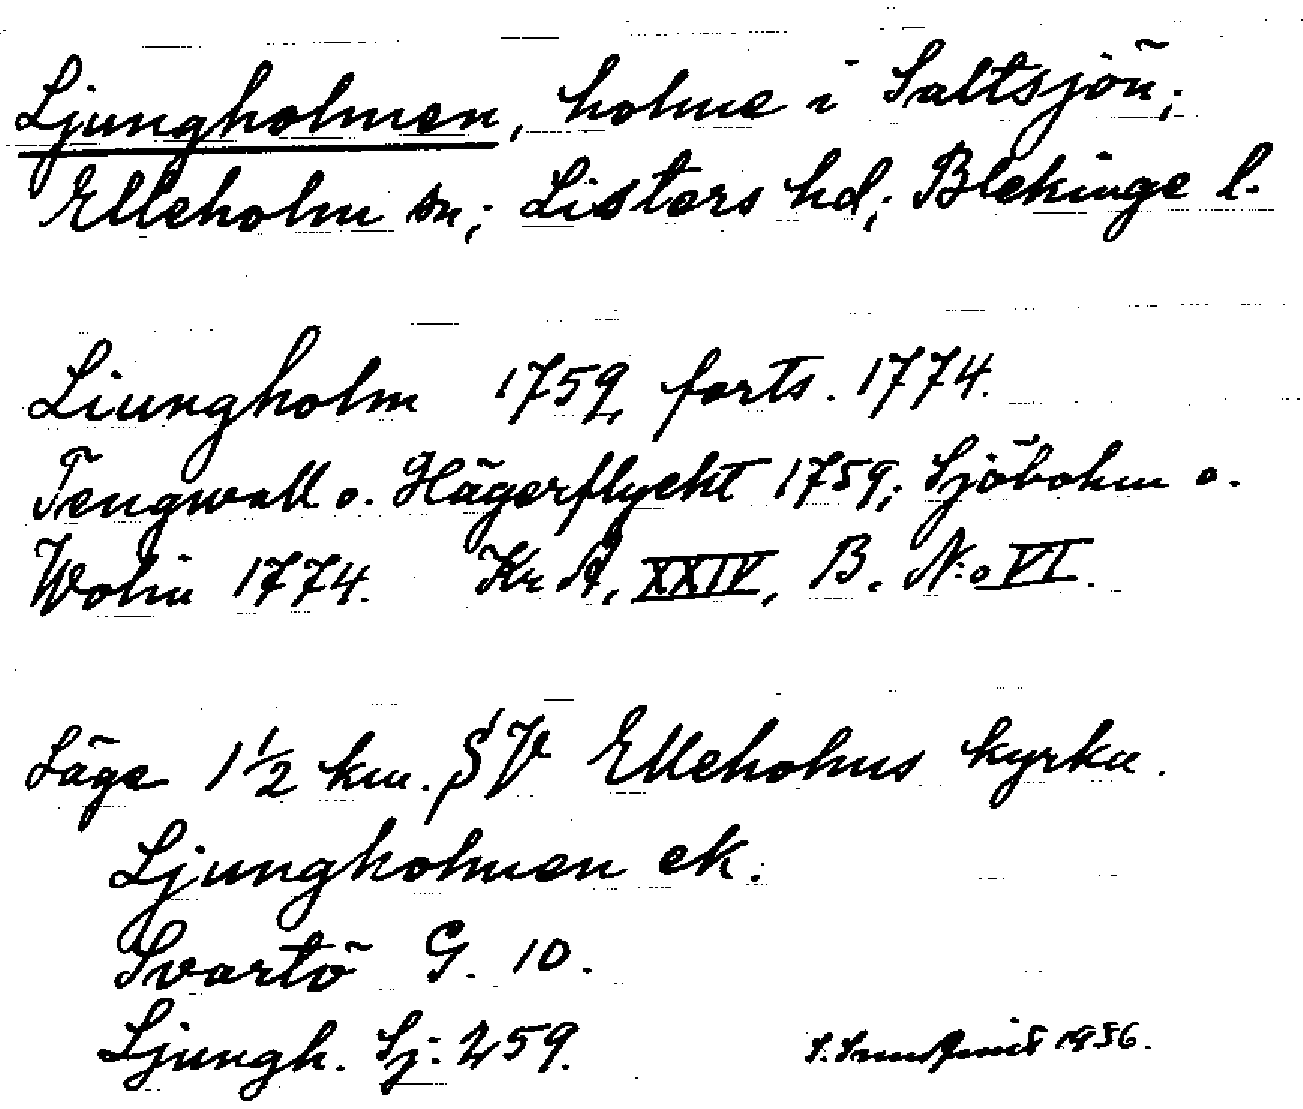 Ljungholmen, holme i Saltsjön;
Elleholm sn; Listers hd; Blekinge l.
Liungholm 1759, forts. 1774.
Tengwall o. Hägerflycht 1759; Sjöbohm o.
Wolin 1774. Kr A, XXIV, B. N:o VI.
Läge 1½ km. SV Elleholms kyrka.
Ljungholmen ek.
Svartö G. 10.
Ljungh. Sj: 259.
1936.